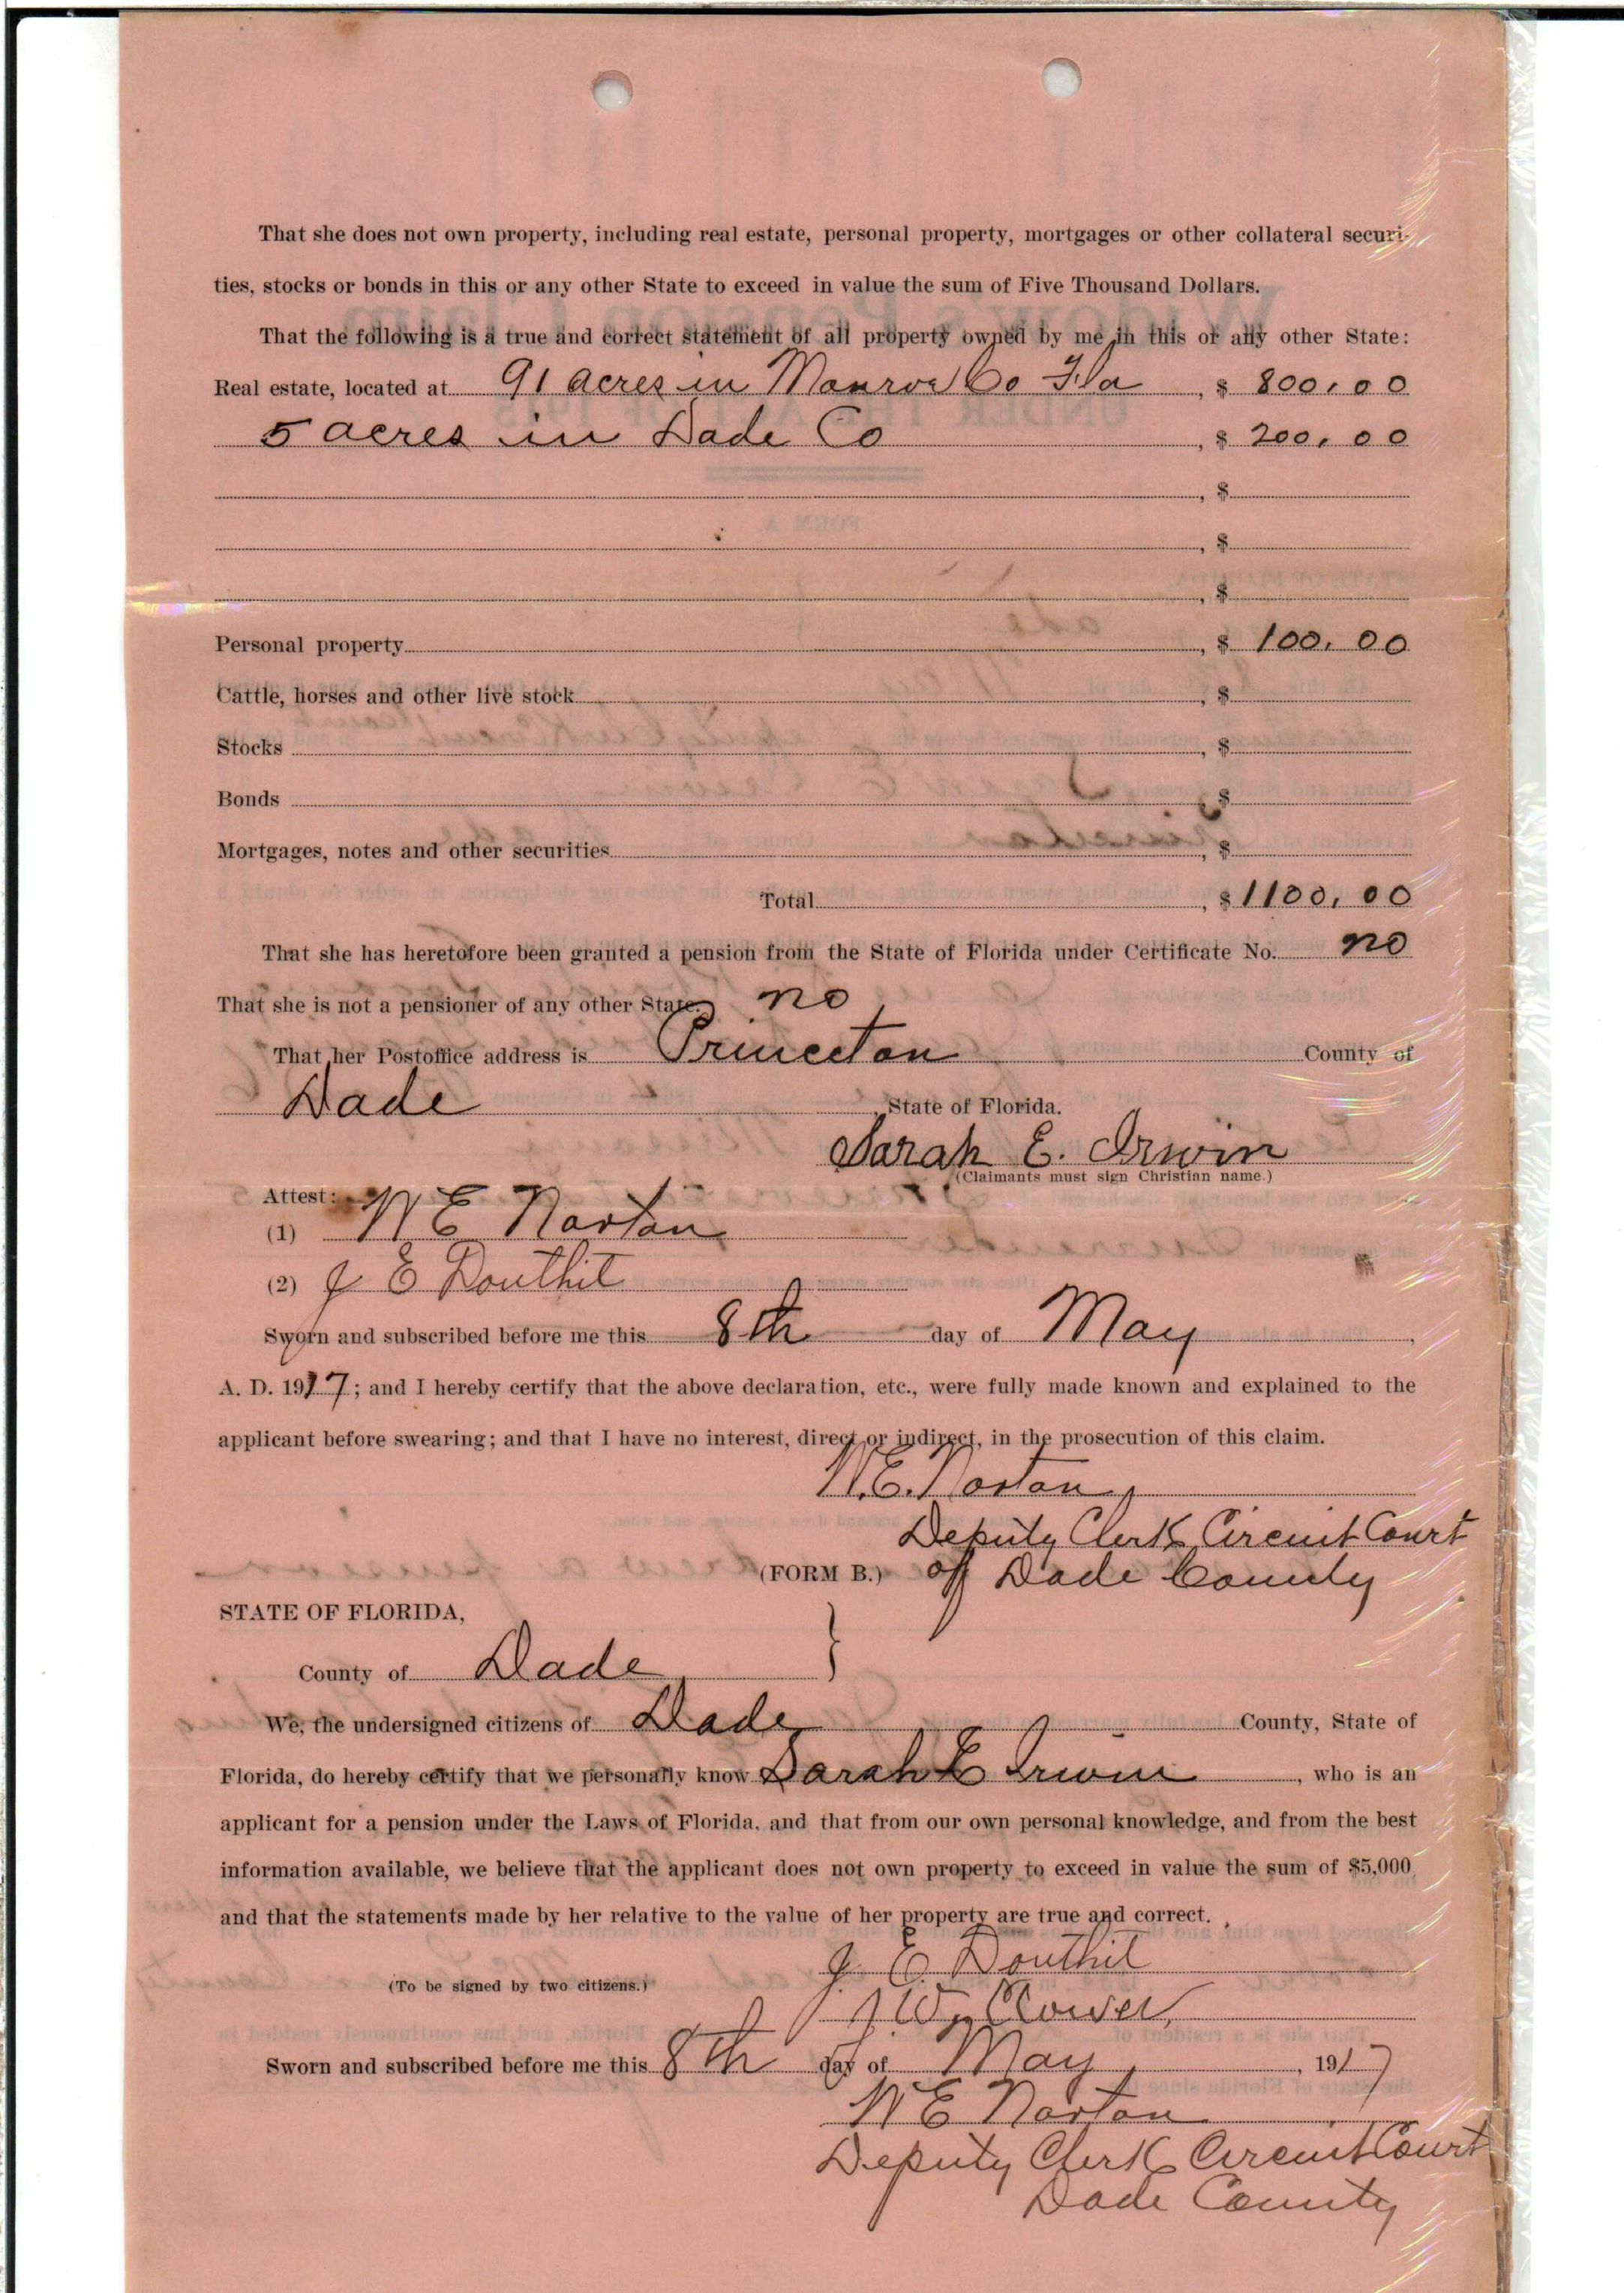 That she does not own property, including real estate, personal property, mortgages or other collateral securi-
ties, stocks or bonds in this or any other State to exceed in value the sum of Five Thousand Dollars.
That the following is a true and correct statement of all property owned by me in this or any other State:
Real estate, located at 91 acres in Monroe Co Fla, $ 800.00
5 acres in Dade Co, $ 200.00
, $
, $
, $
Personal property, $ 100.00
Cattle, horses and other live stock, $
Stocks, $
Bonds, $
Mortgages, notes and other securities, $
Total, $ 1100.00
That she has heretofore been granted a pension from the State of Florida under Certificate No. no
That she is not a pensioner of any other State. no
That her Postoffice address is Princeton County of
Dade, State of Florida.
Sarah E. Irwin
(Claimants must sign Christian name.)
Attest:
(1) W E Norton
(2) J E Douthit
Sworn and subscribed before me this 8th day of May,
A. D. 1917; and I hereby certify that the above declaration, etc., were fully made known and explained to the
applicant before swearing; and that I have no interest, direct or indirect, in the prosecution of this claim.
W.E. Norton
Deputy Clerk Circuit Court
(FORM B.) of Dade County
STATE OF FLORIDA,
County of Dade }
We, the undersigned citizens of Dade County, State of
Florida, do hereby certify that we personally know Sarah E Irwin, who is an
applicant for a pension under the Laws of Florida, and that from our own personal knowledge, and from the best
information available, we believe that the applicant does not own property to exceed in value the sum of $5,000
and that the statements made by her relative to the value of her property are true and correct.
J. E. Douthit
(To be signed by two citizens.)
J. W.
Sworn and subscribed before me this 8th day of May, 1917
W E Norton
Deputy Clerk Circuit Court
Dade County